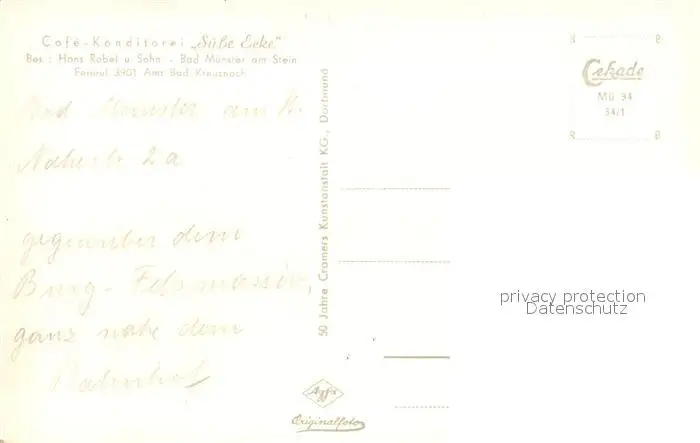 Café-Konditorei „Süße Ecke"
Bes.: Hans Rabel u. Sohn - Bad Münster am Stein
Fernruf 3901 Amt Bad Kreuznach
Bad Münster am St.
Nahestr. 2a
gegenüber dem
Burg-Felsmassiv,
ganz nahe dem
Bahnhof
50 Jahre Cramers Kunstanstalt KG., Dortmund
Cekade
Mü 94
34/1
privacy protection
Datenschutz
Agfa
Originalfoto